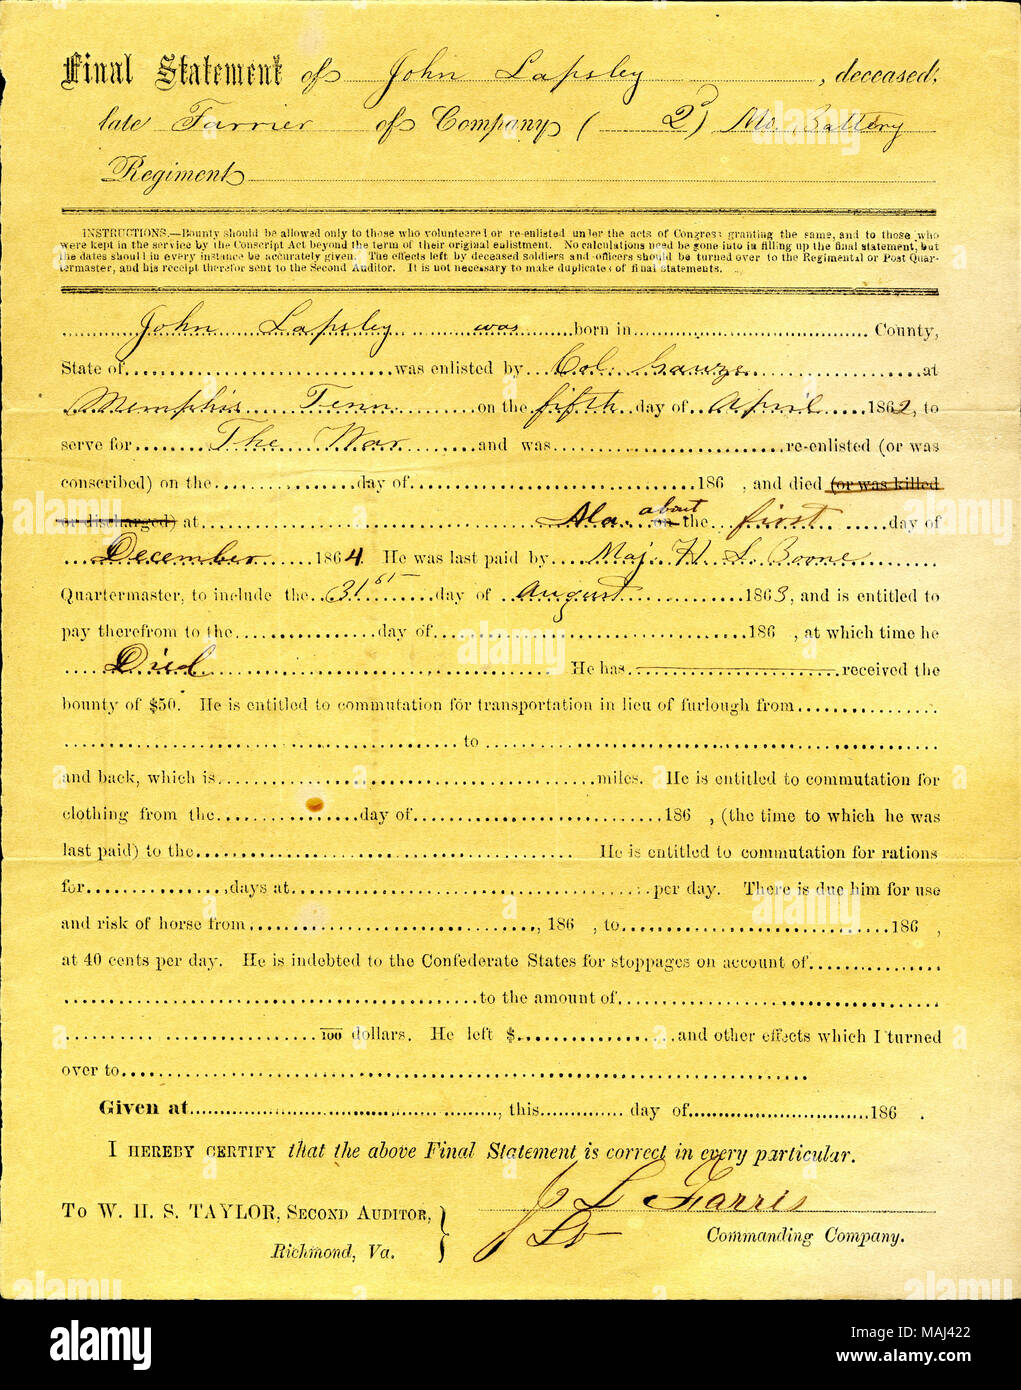 Final Statement of John Lapsley, deceased,
late Farrier of Company ( 2d ) Mo. Battery
Regiment
INSTRUCTIONS.—Bounty should be allowed only to those who volunteered or re-enlisted under the acts of Congress granting the same, and to those who
were kept in the service by the Conscript Act beyond the term of their original enlistment. No calculations need be gone into in filling up the final statement, but
the dates should in every instance be accurately given. The effects left by deceased soldiers and officers should be turned over to the Regimental or Post Quar-
termaster, and his receipt therefor sent to the Second Auditor. It is not necessary to make duplicates of final statements.
John Lapsley was born in County,
State of was enlisted by Col. at
Memphis Tenn on the fifth day of April 1862, to
serve for The War and was re-enlisted (or was
conscribed) on the day of 186 , and died (or was killed
or discharged) at Ala. about on the first day of
December 1864 He was last paid by Maj. H S. Boone
Quartermaster, to include the 31st day of August 1863, and is entitled to
pay therefrom to the day of 186 , at which time he
Died He has received the
bounty of $50. He is entitled to commutation for transportation in lieu of furlough from
to
and back, which is miles. He is entitled to commutation for
clothing from the day of 186 , (the time to which he was
last paid) to the He is entitled to commutation for rations
for days at per day. There is due him for use
and risk of horse from , 186 , to 186 ,
at 40 cents per day. He is indebted to the Confederate States for stoppages on account of
to the amount of
100 dollars. He left $ and other effects which I turned
over to
Given at , this day of 186 .
I HEREBY CERTIFY that the above Final Statement is correct in every particular.
J L Farris
To W. H. S. TAYLOR, SECOND AUDITOR,
Lt Commanding Company.
Richmond, Va.
alamy
Image ID: MAJ422
www.alamy.com